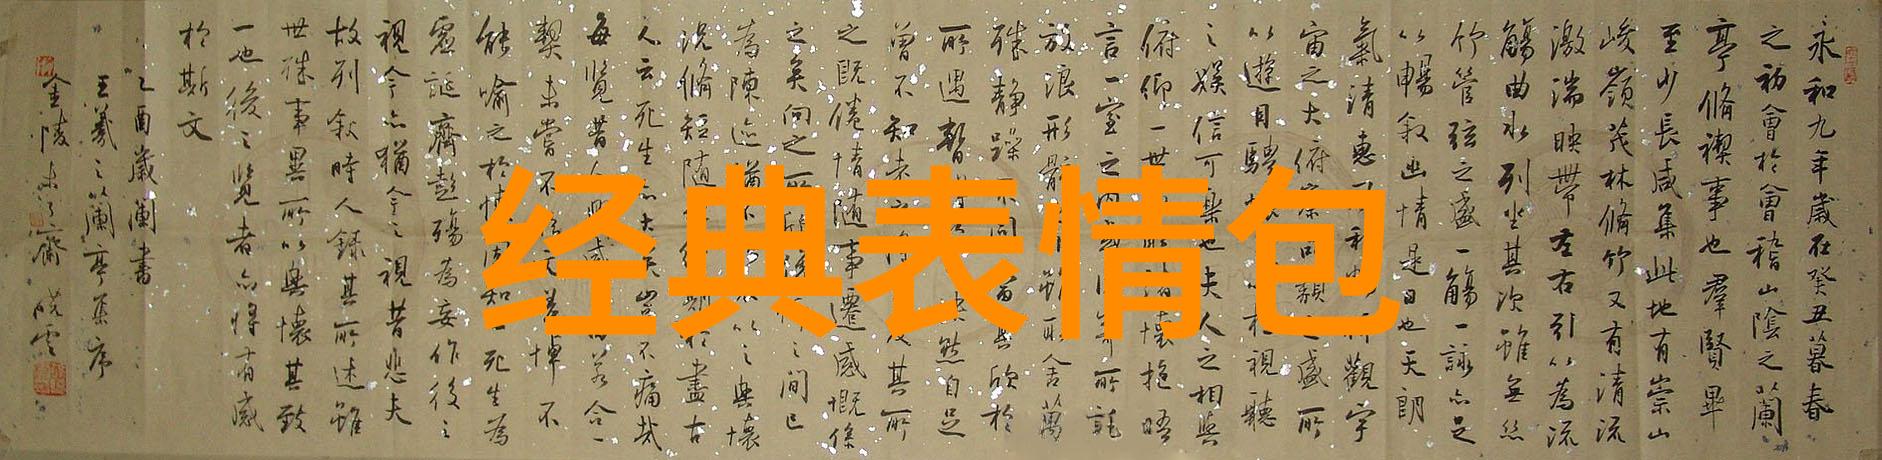 永和九年歲在癸丑暮春
之初會於會稽山陰之蘭
亭脩禊事也羣賢畢
至少長咸集此地有崇山
峻嶺茂林脩竹又有清流
激湍映帶左右引以為流
觴曲水列坐其次雖無丝
竹管弦之盛一觴一詠亦足
以暢敘幽情是日也天朗
氣清惠風和觀宇
宙之大俯察品類之盛所
以遊目騁視聽
之娛信可樂也夫人之相與
俯仰一世諸懷抱晤
言一室之內或寄所託
放浪形骸雖取舍萬
殊靜躁不同當其欣於
所遇暫快然自足
曾不知老及其所
之既倦情隨事遷感慨係
之矣向之所之間已
為陳迹猶不以之興懷
況脩短隨於盡古
人云死生亦大矣豈不痛哉
每覽昔人興感若合一
契未嘗不文嗟悼不
能喻之於懷知死生為
虛誕齊彭殤為妄作後之
視今亦猶今之視昔悲夫
故列敘時人錄其所述雖
世殊事異所以興懷其致
一也後之覽者亦將有感
於斯文
乙酉歲蘭書
王羲之蘭亭集序
金陵齋
经典表情包